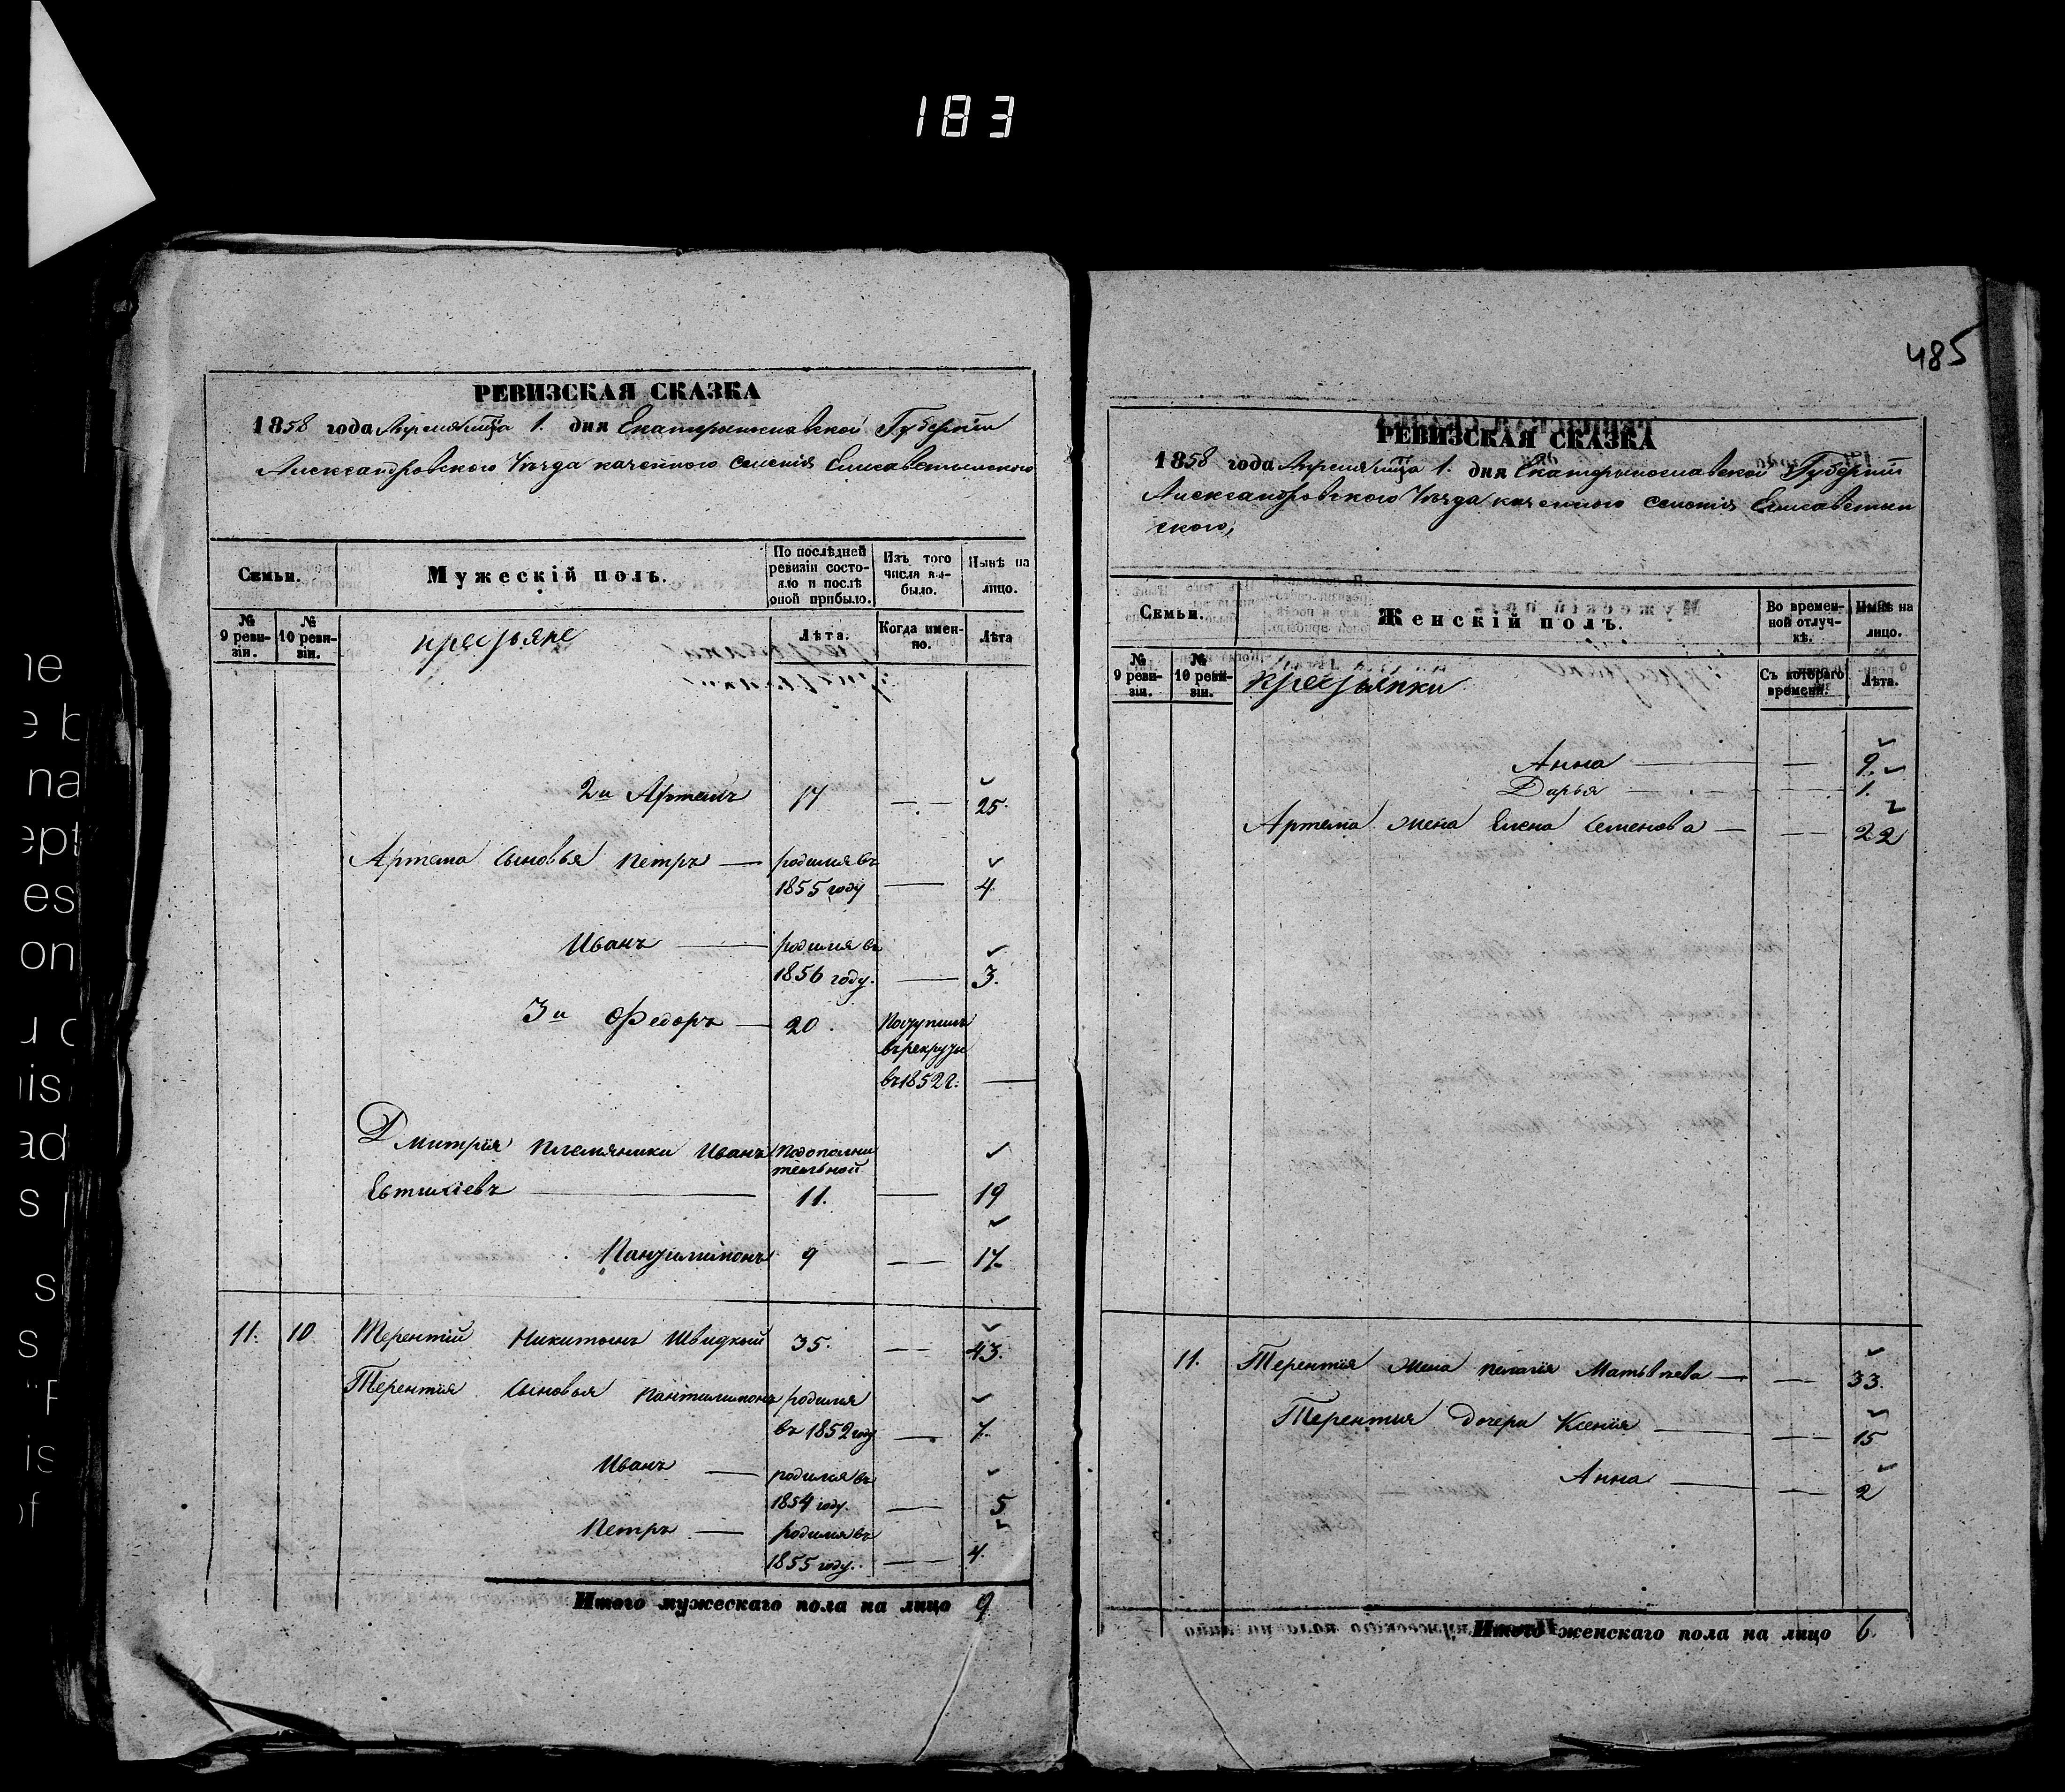 183
РЕВИЗСКАЯ СКАЗКА
1858 года Апреля м-ца 1. дня Екатеринославской Губернїи
Александровского Уѣзда казенного селенїя Елисаветынского
Семьи.
Мужескій полъ.
По послѣдней ревизіи состояло и послѣ оной прибыло.
Изъ того числа выбыло.
Нынѣ на лицо.
№ 9 ревизіи.
№ 10 ревизіи.
крестьяне
Лѣта.
Когда именно.
Лѣта
2й Артемъ 17 — 25.
Артема сыновья Петръ — родился въ
1855 году — 4.
Иванъ — родился въ
1856 году. — 3.
3й Федоръ — 20. Поступилъ
въ рекруты
въ 1852 г: —
Дмитрїя племяники Иванъ По дополни
тельной
Евтихїевъ — 11. — 19
Пантилимонъ 9 — 17.
11. 10 Терентїй Никитинъ Швидкый 35. — 43.
Терентїя сыновья Пантилимонъ родился
въ 1852 году — 7.
Иванъ — родился въ
1854 году. — 5
Петръ — родился въ
1855 году. — 4.
Итого мужескаго пола на лицо 9
485
РЕВИЗСКАЯ СКАЗКА
1858 года Апреля м-ца 1. дня Екатеринославской Губернїи
Александровского Уѣзда казенного селенїя Елисаветын
ского,
Семьи.
Женскій полъ.
Во временной отлучкѣ.
Нынѣ на лицо.
№ 9 ревизіи.
№ 10 ревизіи.
крестьянки
Съ котораго времени.
Лѣта.
Анна — — 9.
Дарья — — 1.
Артема жена Елена Семенова — — 22
11. Терентїя жена Пелагїя Матвѣева — — 33.
Терентїя дочери Ксенїя — — 15
Анна — — 2
Итого женскаго пола на лицо 6